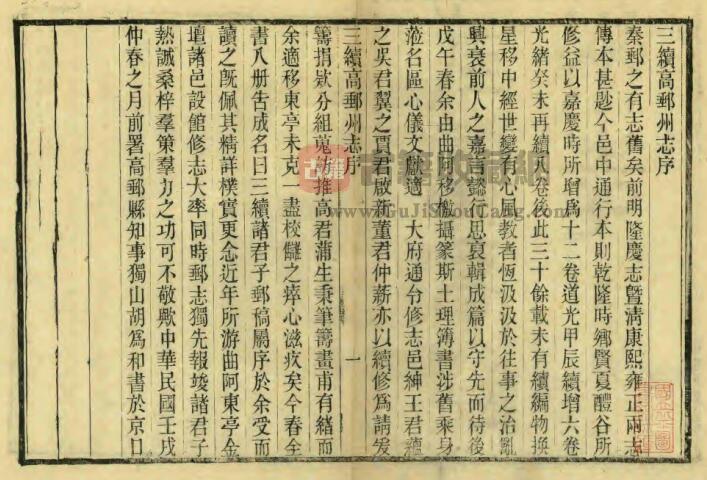 三續高郵州志序
秦郵之有志舊矣前明隆慶志暨清康熙雍正兩志
傳本甚尠今邑中通行本則乾隆時鄉賢夏醴谷所
修益以嘉慶時所增為十二卷道光甲辰續增六卷
光緒癸未再續八卷後此三十餘載未有續編物換
星移中經世變有心風教者恆汲汲於往事之治亂
興衰前人之嘉言懿行思裒輯成篇以守先而待後
戊午春余由曲阿移檄攝篆斯土理簿書涉舊乘身
蒞名區心儀文獻適 大府通令修志邑紳王君蘊
之吳君翼之賈君啟新董君仲薪亦以續修為請爰
三續高郵州志序 一
籌捐欵分組蒐訪推高君蒲生秉筆籌畫甫有緒而
余適移東亭未克一盡校讎之瘁心滋疚矣今春全
書八册告成名曰三續諸君子郵稿屬序於余受而
讀之旣佩其精詳樸實更念近年所游曲阿東亭金
壇諸邑設館修志大率同時郵志獨先報竣諸君子
熱誠桑梓羣策羣力之功可不敬歟中華民國壬戌
仲春之月前署高郵縣知事獨山胡為和書於京口
古籍
www.GuJiShouCang.com